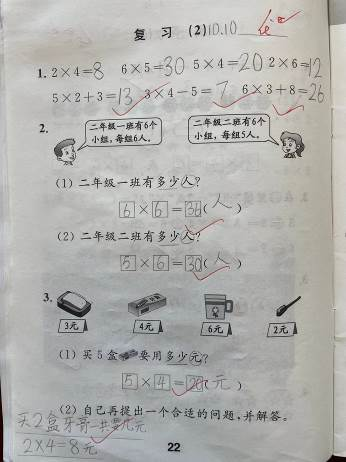 复 习 (2) 10.10
1. 2×4=8 6×5=30 5×4=20 2×6=12
5×2+3=13 3×4-5=7 6×3+8=26
2.
二年级一班有6个
小组,每组6人。
二年级二班有6个
小组,每组5人。
(1) 二年级一班有多少人?
6×6=36(人)
(2) 二年级二班有多少人?
5×6=30(人)
3.
3元 4元 6元 2元
(1) 买 5 盒 要用多少元?
5×4=20(元)
(2) 自己再提出一个合适的问题,并解答。
买2盒牙膏一共要几元
2×4=8元
22